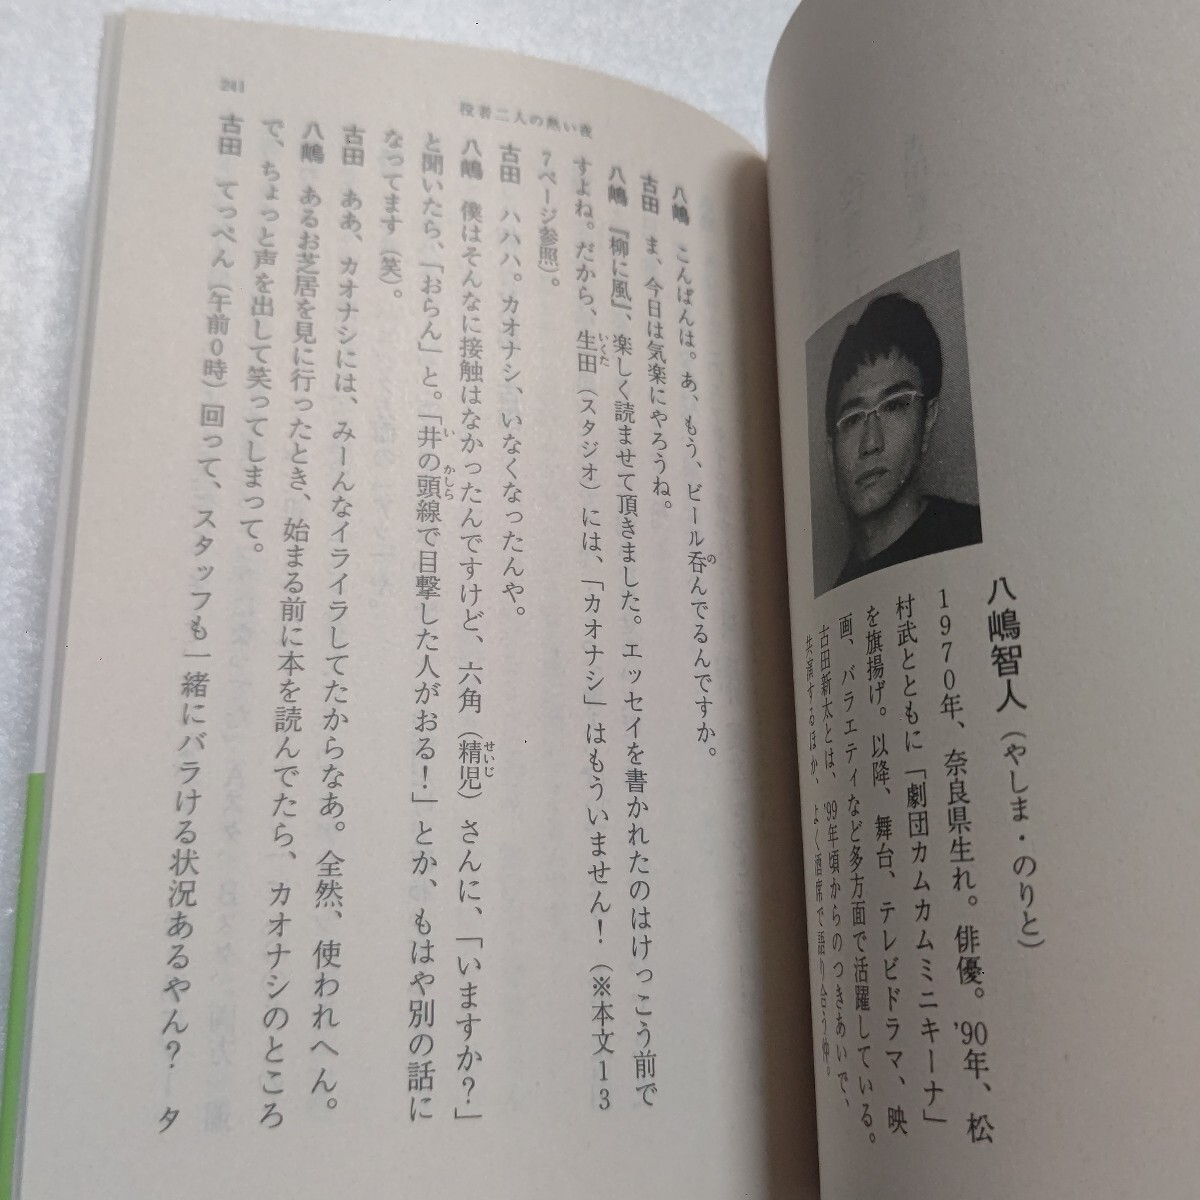 八嶋智人（やしま・のりと）
1970年、奈良県生れ。俳優。'90年、松
村武とともに「劇団カムカムミニキーナ」
を旗揚げ。以降、舞台、テレビドラマ、映
画、バラエティなど多方面で活躍している。
古田新太とは、'99年頃からのつきあいで、
共演するほか、よく酒席で語り合う仲。
役者二人の熱い夜
241
八嶋　こんばんは。あ、もう、ビール呑んでるんですか。
古田　ま、今日は気楽にやろうね。
八嶋　『柳に風』、楽しく読ませて頂きました。エッセイを書かれたのはけっこう前で
すよね。だから、生田（スタジオ）には、「カオナシ」はもういません！（※本文13
7ページ参照）。
古田　ハハハ。カオナシ、いなくなったんや。
八嶋　僕はそんなに接触はなかったんですけど、六角（精児）さんに、「いますか？」
と聞いたら、「おらん」と。「井の頭線で目撃した人がおる！」とか、もはや別の話に
なってます（笑）。
古田　ああ、カオナシには、みーんなイライラしてたからなあ。全然、使われへん。
八嶋　あるお芝居を見に行ったとき、始まる前に本を読んでたら、カオナシのところ
で、ちょっと声を出して笑ってしまって。
古田　てっぺん（午前0時）回って、スタッフも一緒にバラける状況あるやん？　タ